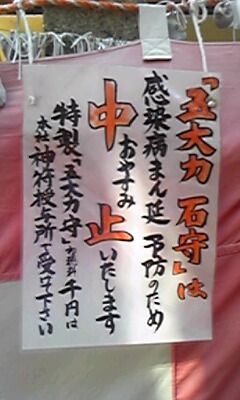 「五大力 石守」は
感染病まん延 予防のため
おすみ
中止いたします
特製「五大力守」 千円は
本社神符授与所で受けて下さい